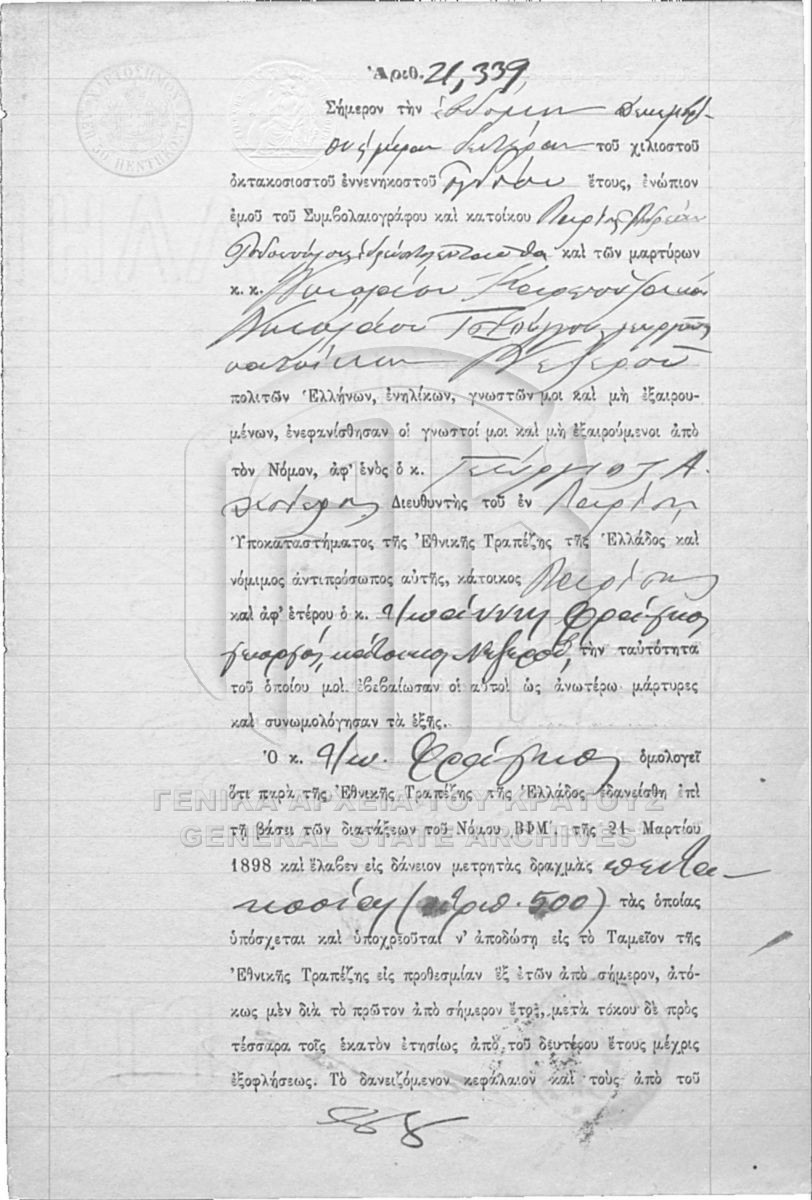 Ἀριθ. 21,339
Σήμερον τὴν ἑβδόμην Δεκεμβρί-
ου ἡμέραν Δευτέραν τοῦ χιλιοστοῦ
ὀκτακοσιοστοῦ ἐννενηκοστοῦ ὀγδόου ἔτους, ἐνώπιον
ἐμοῦ τοῦ Συμβολαιογράφου καὶ κατοίκου Λαρίσης Ἀνδρέου
καὶ τῶν μαρτύρων
κ. κ. Νικολάου
Νικολάου γεωργῶν
κατοίκων Νεζεροῦ
πολιτῶν Ἑλλήνων, ἐνηλίκων, γνωστῶν μοι καὶ μὴ ἐξαιρου-
μένων, ἐνεφανίσθησαν οἱ γνωστοί μοι καὶ μὴ ἐξαιρούμενοι ἀπὸ
τὸν Νόμον, ἀφ' ἑνὸς ὁ κ. Γεώργιος Α.
Διευθυντὴς τοῦ ἐν Λαρίσῃ
Ὑποκαταστήματος τῆς Ἐθνικῆς Τραπέζης τῆς Ἑλλάδος καὶ
νόμιμος ἀντιπρόσωπος αὐτῆς, κάτοικος Λαρίσης
καὶ ἀφ' ἑτέρου ὁ κ. Ἰωάννης Φράγκος
γεωργός, κάτοικος Νεζεροῦ, τὴν ταὐτότητα
τοῦ ὁποίου μοὶ ἐβεβαίωσαν οἱ αὐτοὶ ὡς ἀνωτέρω μάρτυρες
καὶ συνωμολόγησαν τὰ ἑξῆς.
Ὁ κ. Ἰω. Φράγκος ὁμολογεῖ
ὅτι παρὰ τῆς Ἐθνικῆς Τραπέζης τῆς Ἑλλάδος ἐδανείσθη ἐπὶ
ΓΕΝΙΚΑ ΑΡΧΕΙΑ ΤΟΥ ΚΡΑΤΟΥΣ
τῇ βάσει τῶν διατάξεων τοῦ Νόμου ͵ΒΦΜ΄. τῆς 21 Μαρτίου
GENERAL STATE ARCHIVES
1898 καὶ ἔλαβεν εἰς δάνειον μετρητὰς δραχμὰς πεντα-
κοσίας (ἀριθ. 500) τὰς ὁποίας
ὑπόσχεται καὶ ὑποχρεοῦται ν' ἀποδώσῃ εἰς τὸ Ταμεῖον τῆς
Ἐθνικῆς Τραπέζης εἰς προθεσμίαν ἓξ ἐτῶν ἀπὸ σήμερον, ἀτό-
κως μὲν διὰ τὸ πρῶτον ἀπὸ σήμερον ἔτος, μετὰ τόκου δὲ πρὸς
τέσσαρα τοῖς ἑκατὸν ἐτησίως ἀπὸ τοῦ δευτέρου ἔτους μέχρις
ἐξοφλήσεως. Τὸ δανειζόμενον κεφάλαιον καὶ τοὺς ἀπὸ τοῦ